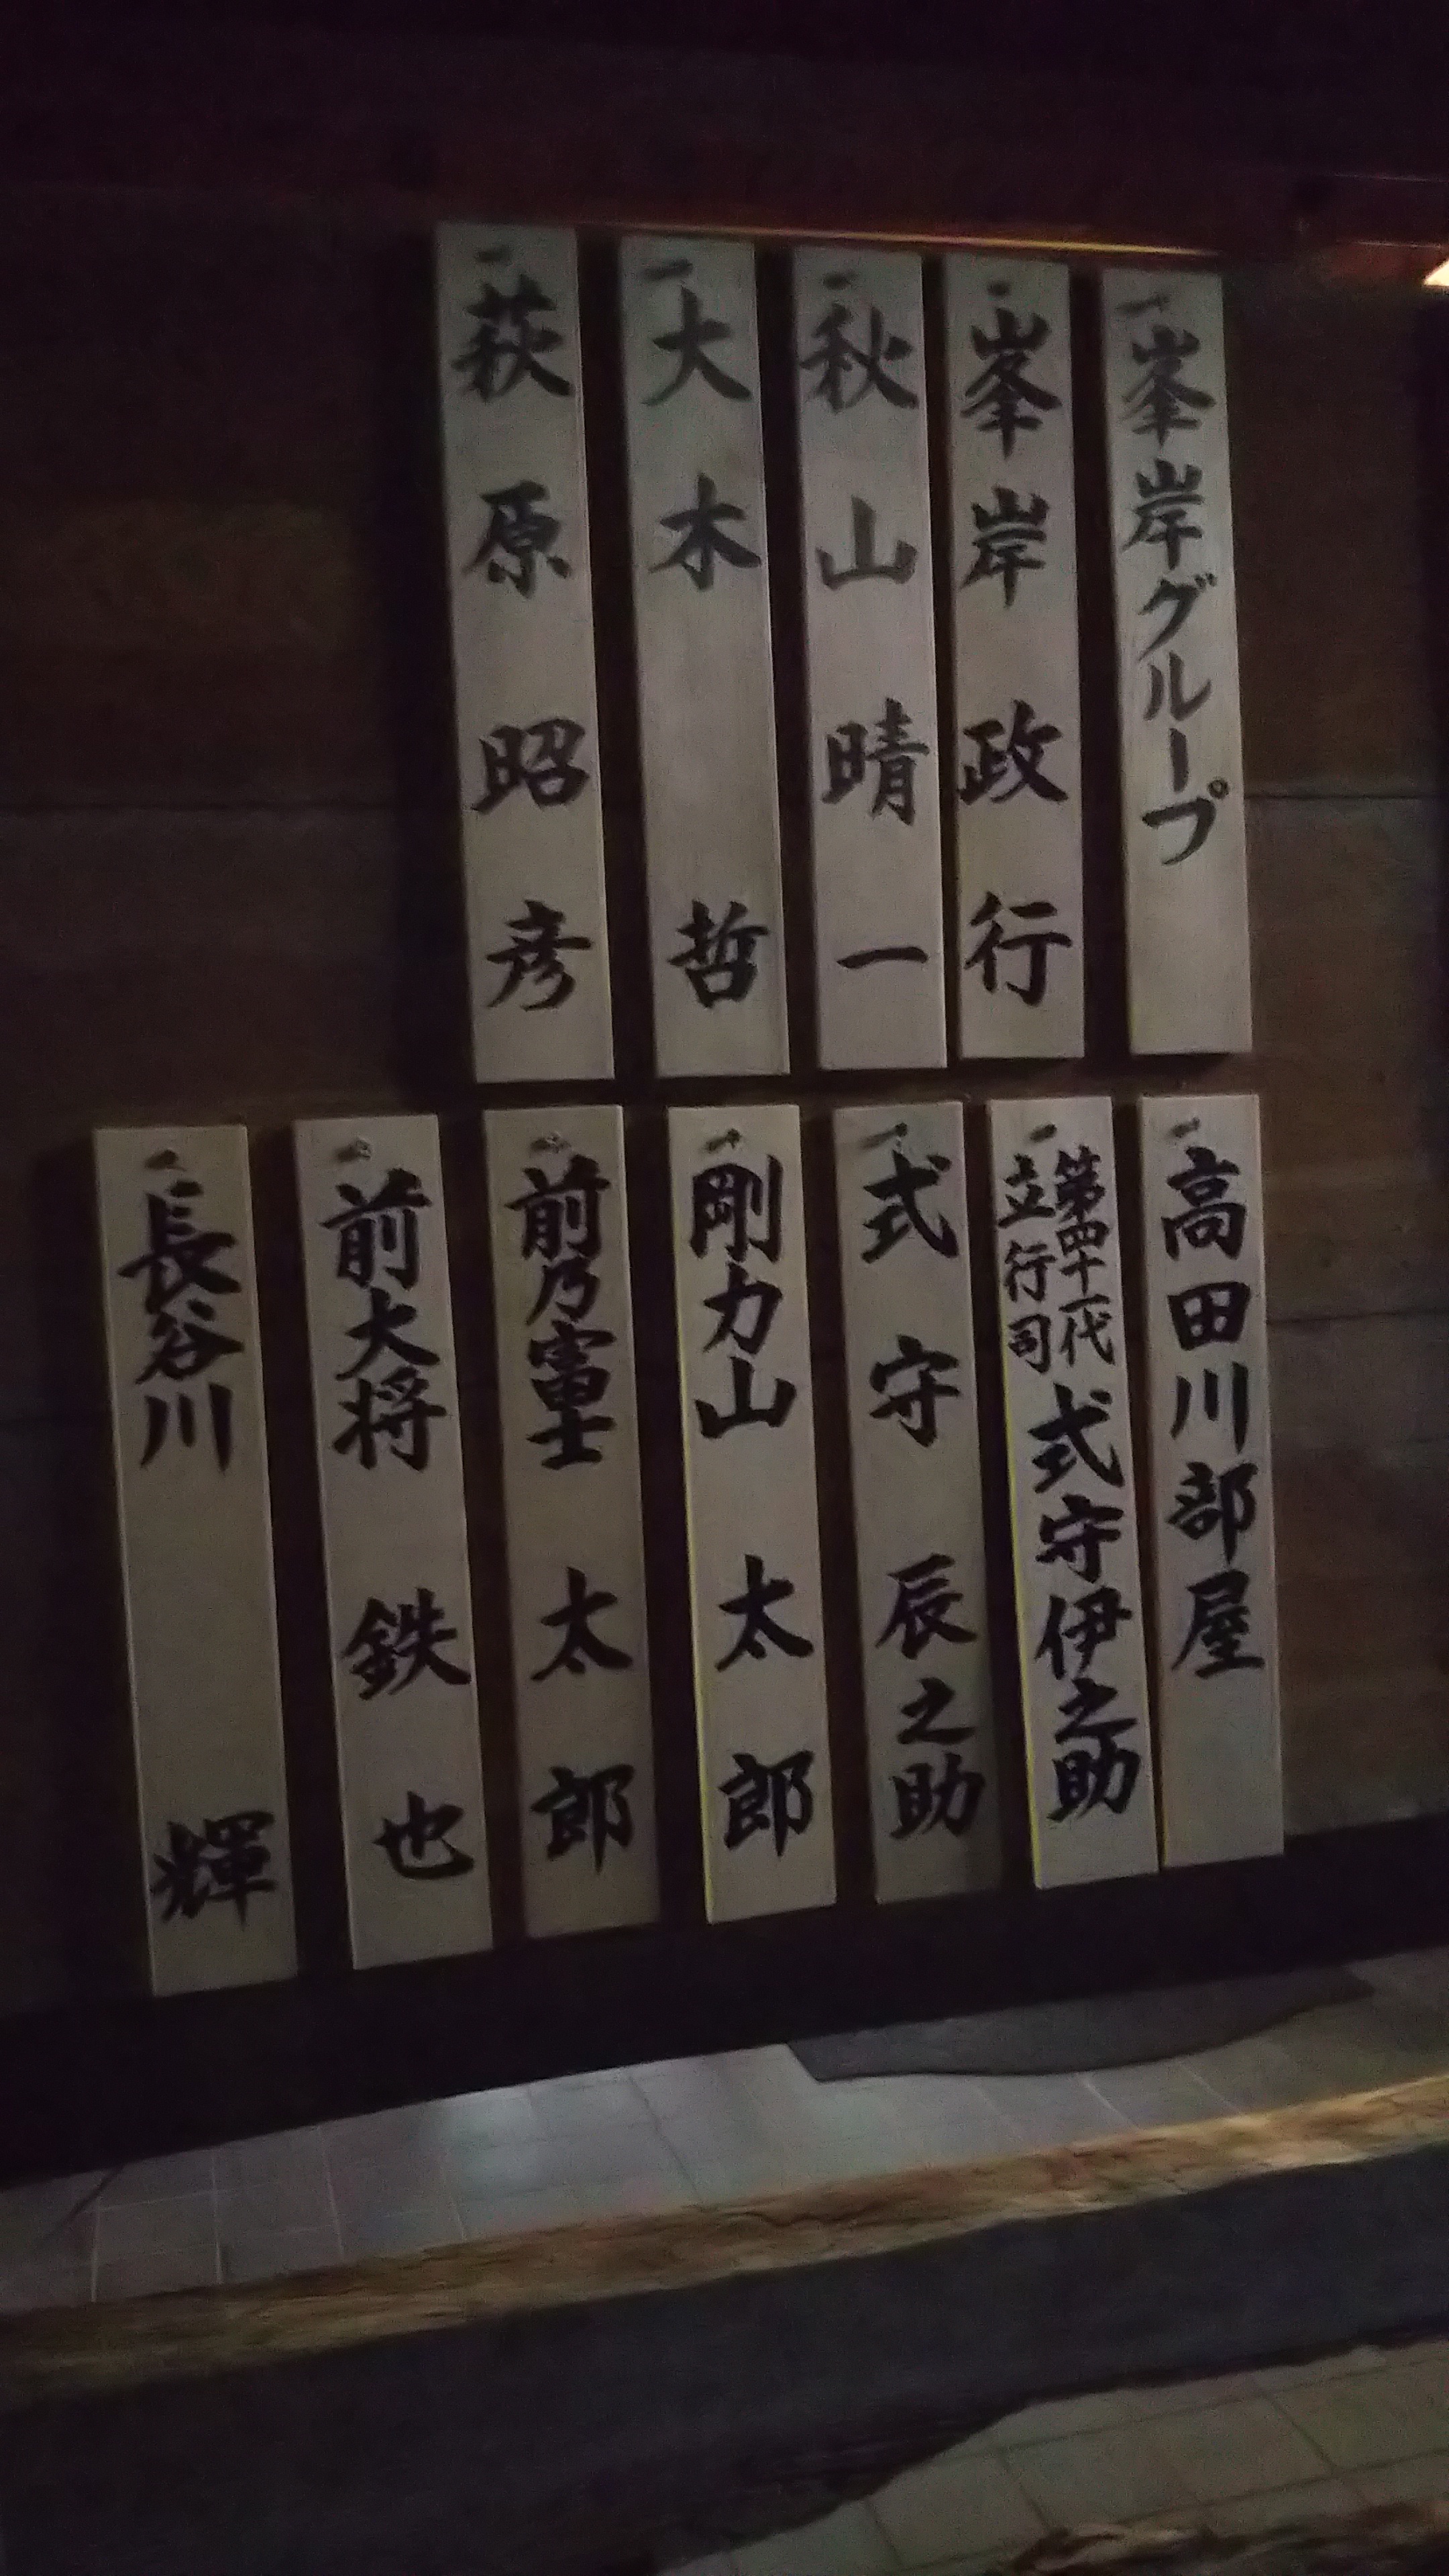 峯岸グループ
峯岸政行
秋山晴一
大木哲
萩原昭彦
高田川部屋
第四十一代
立行司
式守伊之助
式守辰之助
剛力山太郎
前乃富士太郎
前大将鉄也
長谷川輝